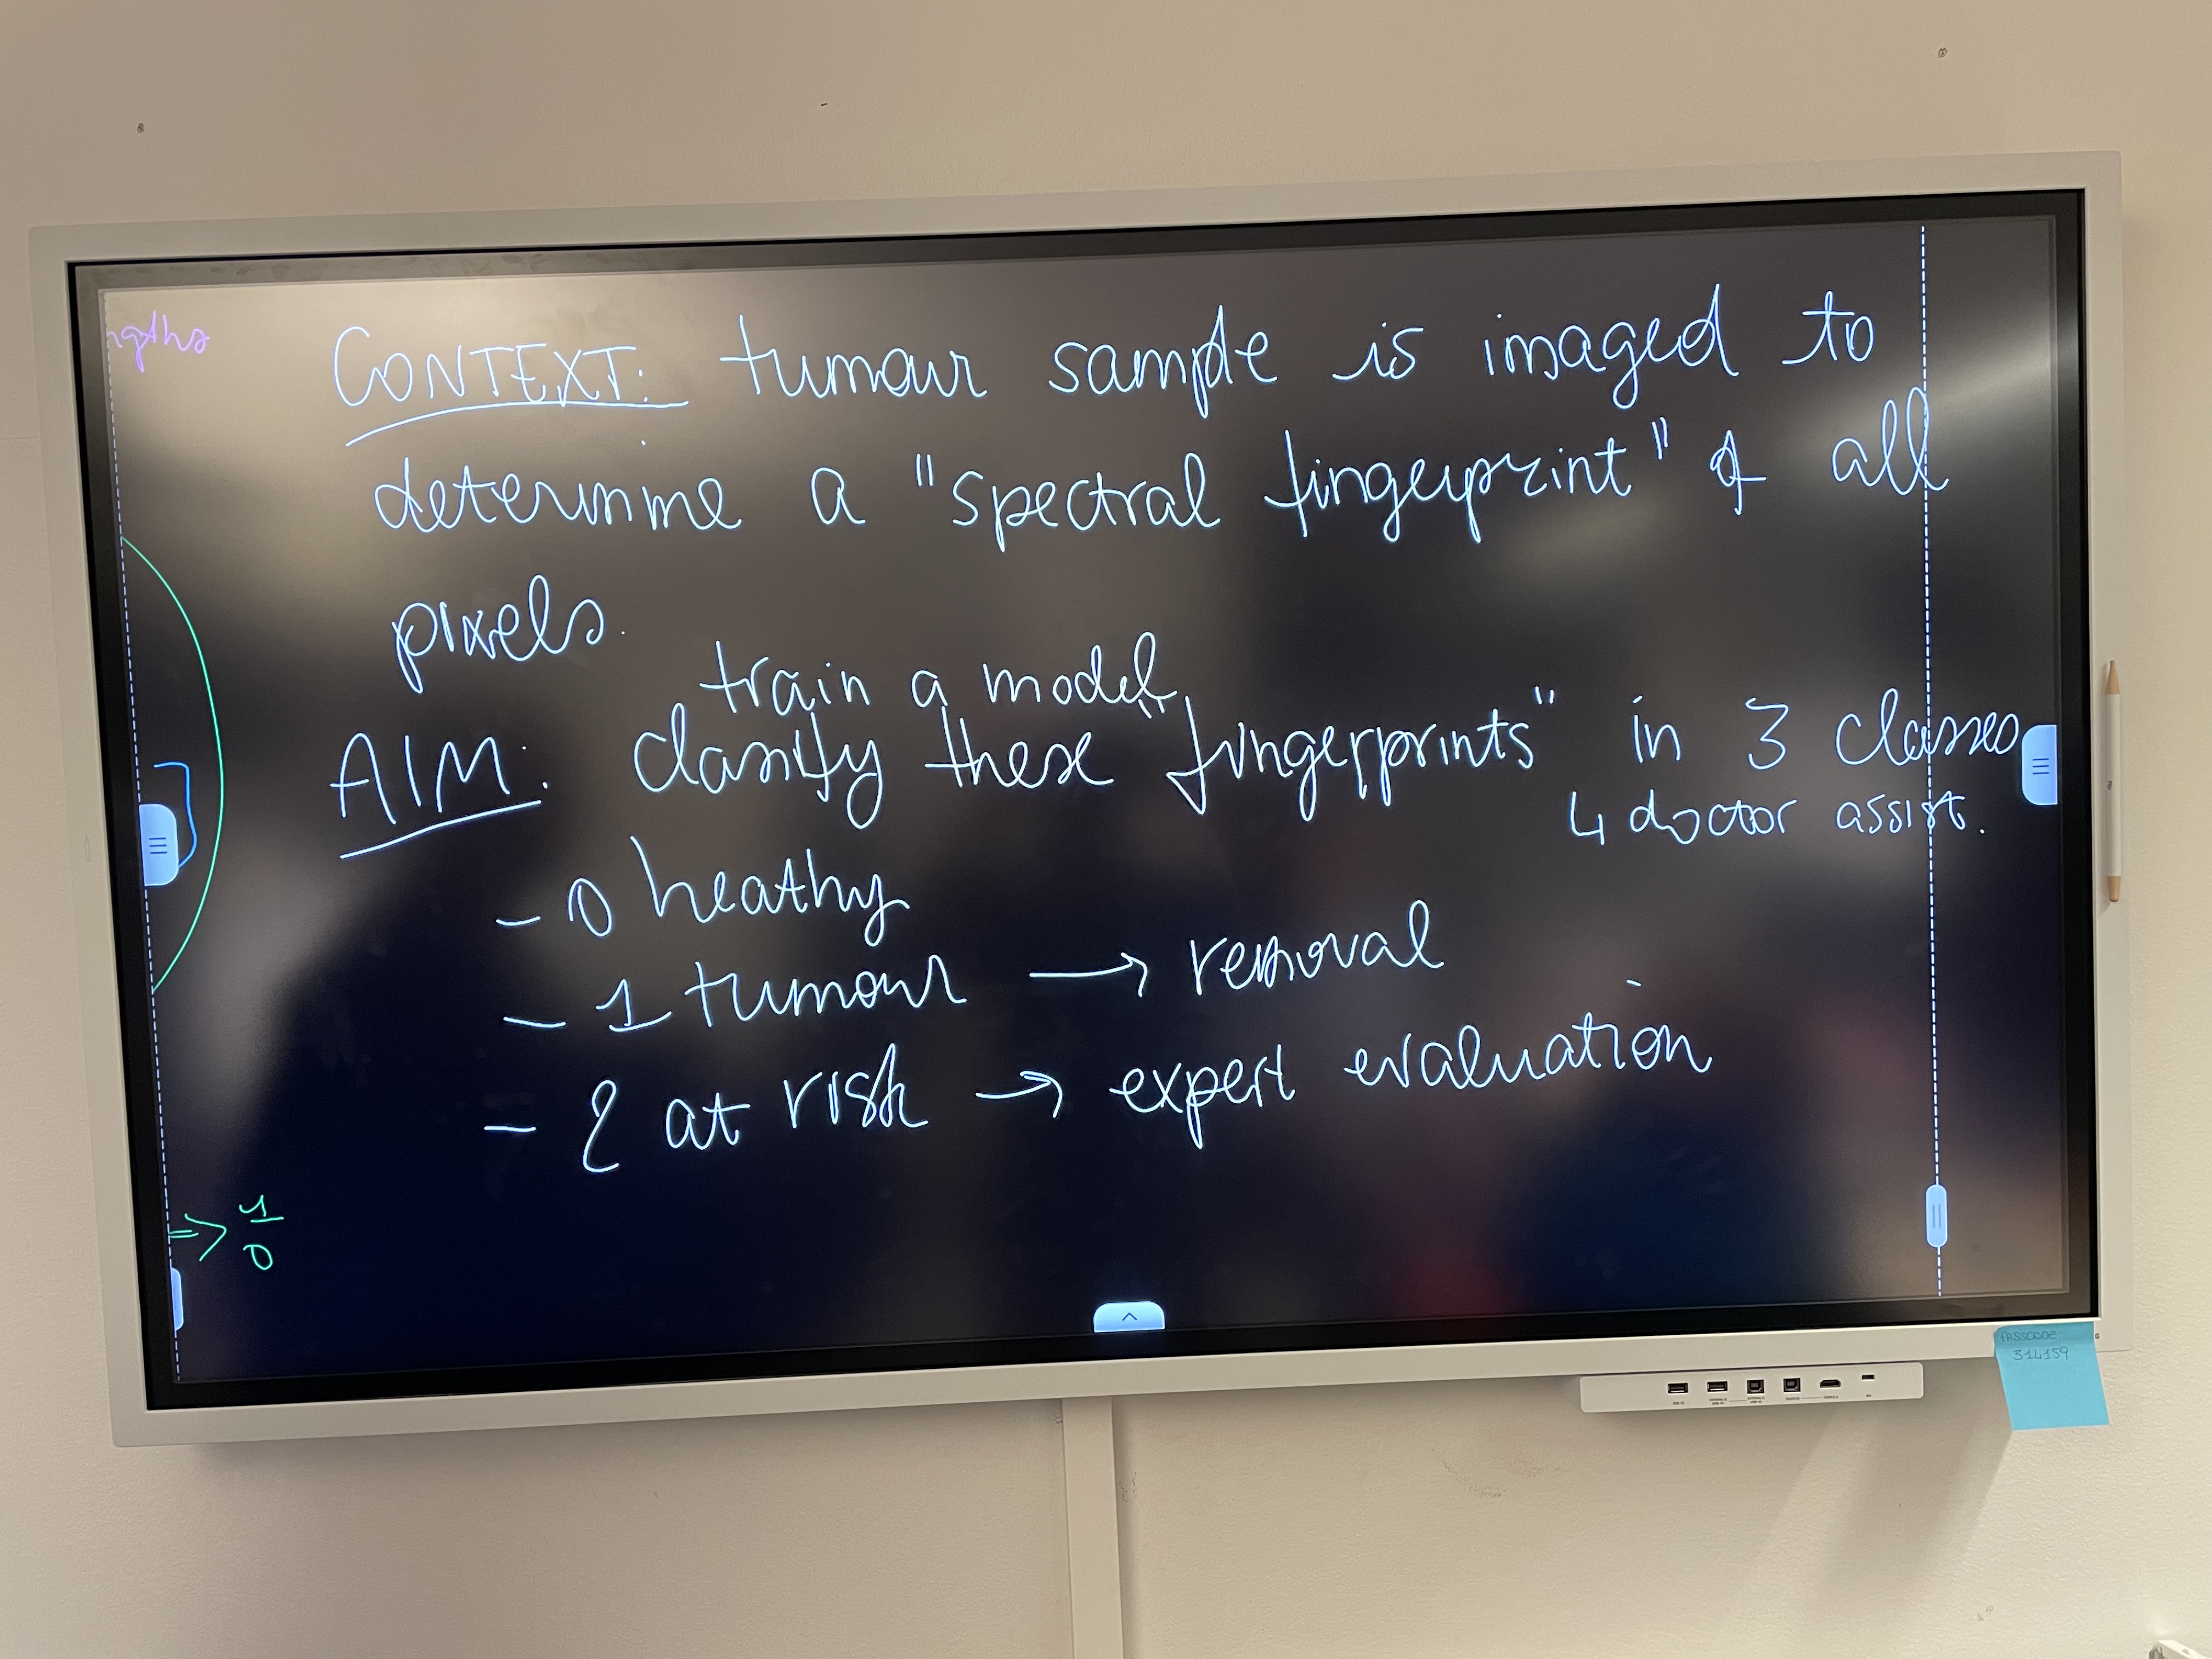 ngths
CONTEXT: tumour sample is imaged to
determine a "spectral fingerprint" of all
pixels.
train a model
AIM: classify these "fingerprints" in 3 classes
4 doctor assist.
- 0 heathy
- 1 tumour → removal
- 2 at risk → expert evaluation
=> 1
0
PASSCODE
314159